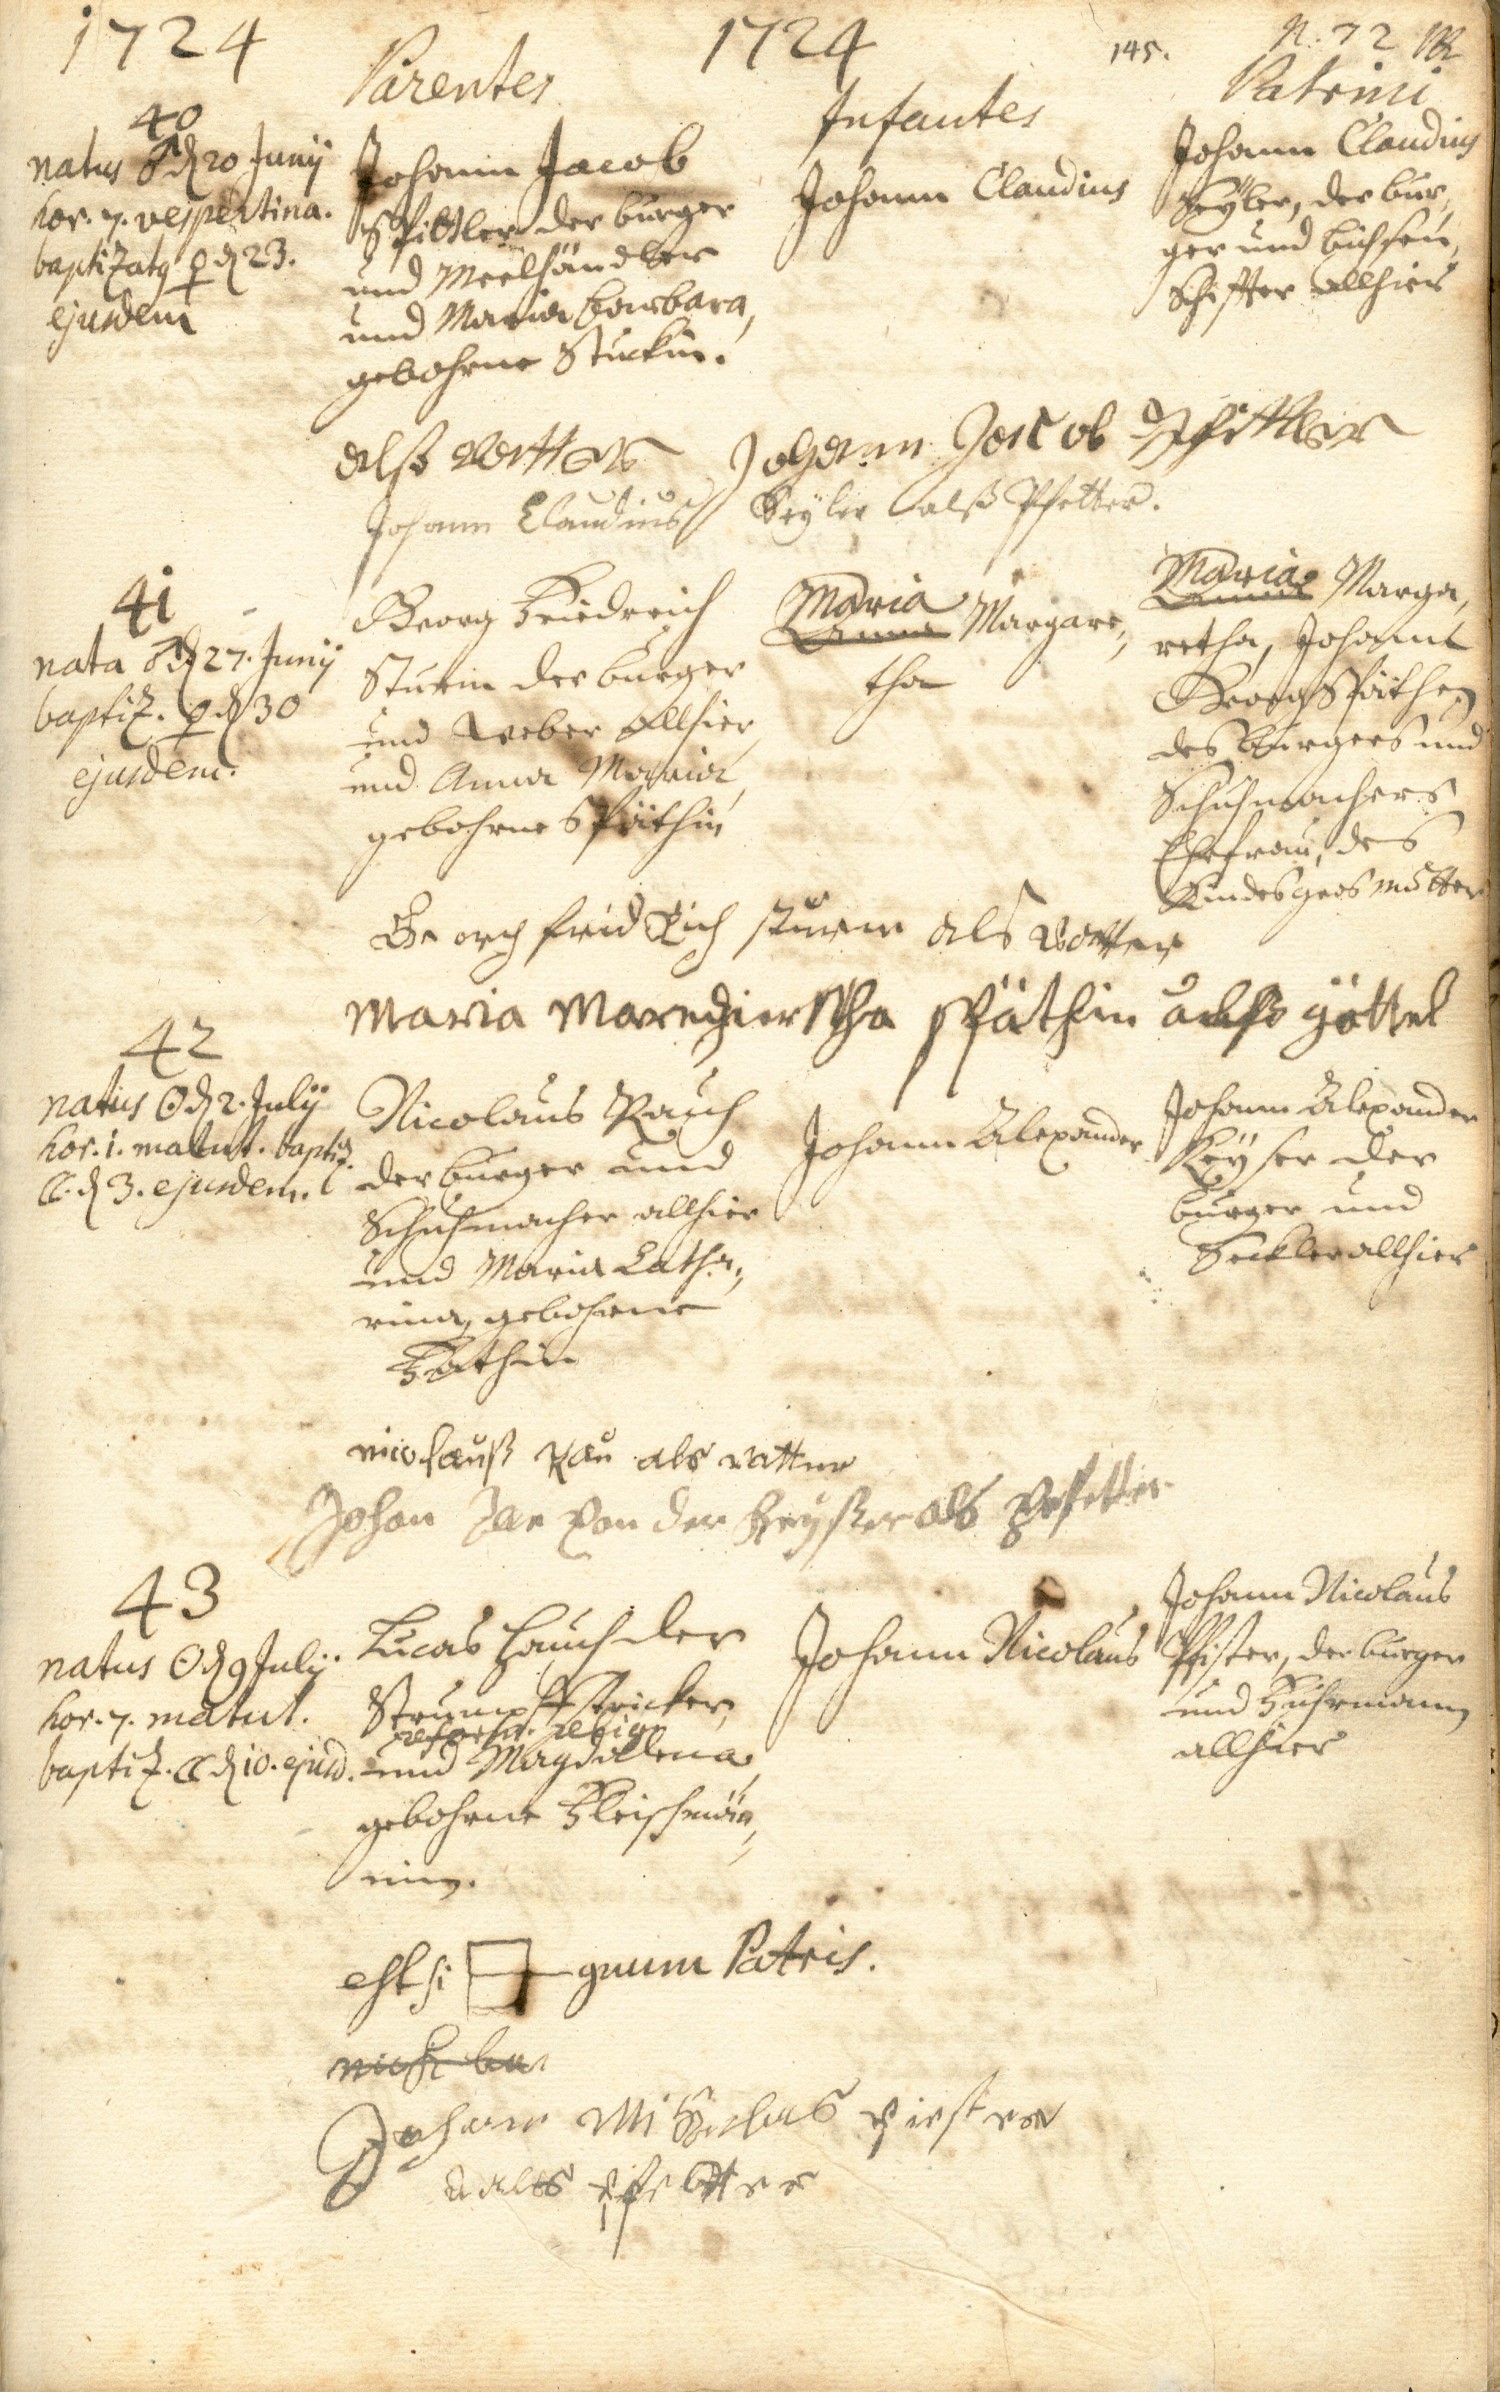 1724 1724 145. N. 72
Parentes Infantes Patrini
40
natus ♂ d 20 Junij
hor. 7. vespertina.
baptizatg ♀ d 23.
ejusdem
Johann Jacob
Spittler der burger
und Meelhändler
und Maria Barbara,
gebohrne Stuckin.
Johann Claudius
Johann Claudius
Seyler, der bur,
ger und büchsen,
Schiffter allhier
alß vatter Johann Jacob Spittler
Johann Claudius Seyler alß Pfetter.
41
nata ♂ d 27. Junij
baptiz. ♀ d 30
ejusdem.
Georg Friedrich
Sturm der burger
und Weber allhier,
und Anna Maria,
gebohrne Späthin
Maria
Anna Margare,,
tha
Maria
Anna Marga,
retha, Johann
Georg Späthen
des burgers und
Schuhmachers
Ehefrau, des
Kindes gros mutter
Georg fridRich sturm als vatter
Maria Margierstha späthin alß göttel
42
natus ☉ d 2. Julij
hor. 1. matut. baptiz.
☾. d 3. ejusdem.
Nicolaus Rauch
der burger und
Schuhmacher allhier
und Maria Catha,,
rina, gebohrne
Fathin
Johann Alexander
Johann Alexander
Keyser der
burger und
Seckler allhier
nicolauß Rau als vatter
Johan der Keyßer als Pfetter
43
natus ☉ d 9 Julij
hor. 7. matut.
baptiz. ☾ d 10. ejusd.
Lucas Hauch der
Strumpffstricker,
reform. relig.
und Magdalena
gebohrne Fleischmän,,
nin.
Johann Nicolaus
Johann Nicolaus
Pfister, der burger
und Fuhrmann
allhier
est si gnum Patris.
Johann Nicolaus Pfister
als Pfetter